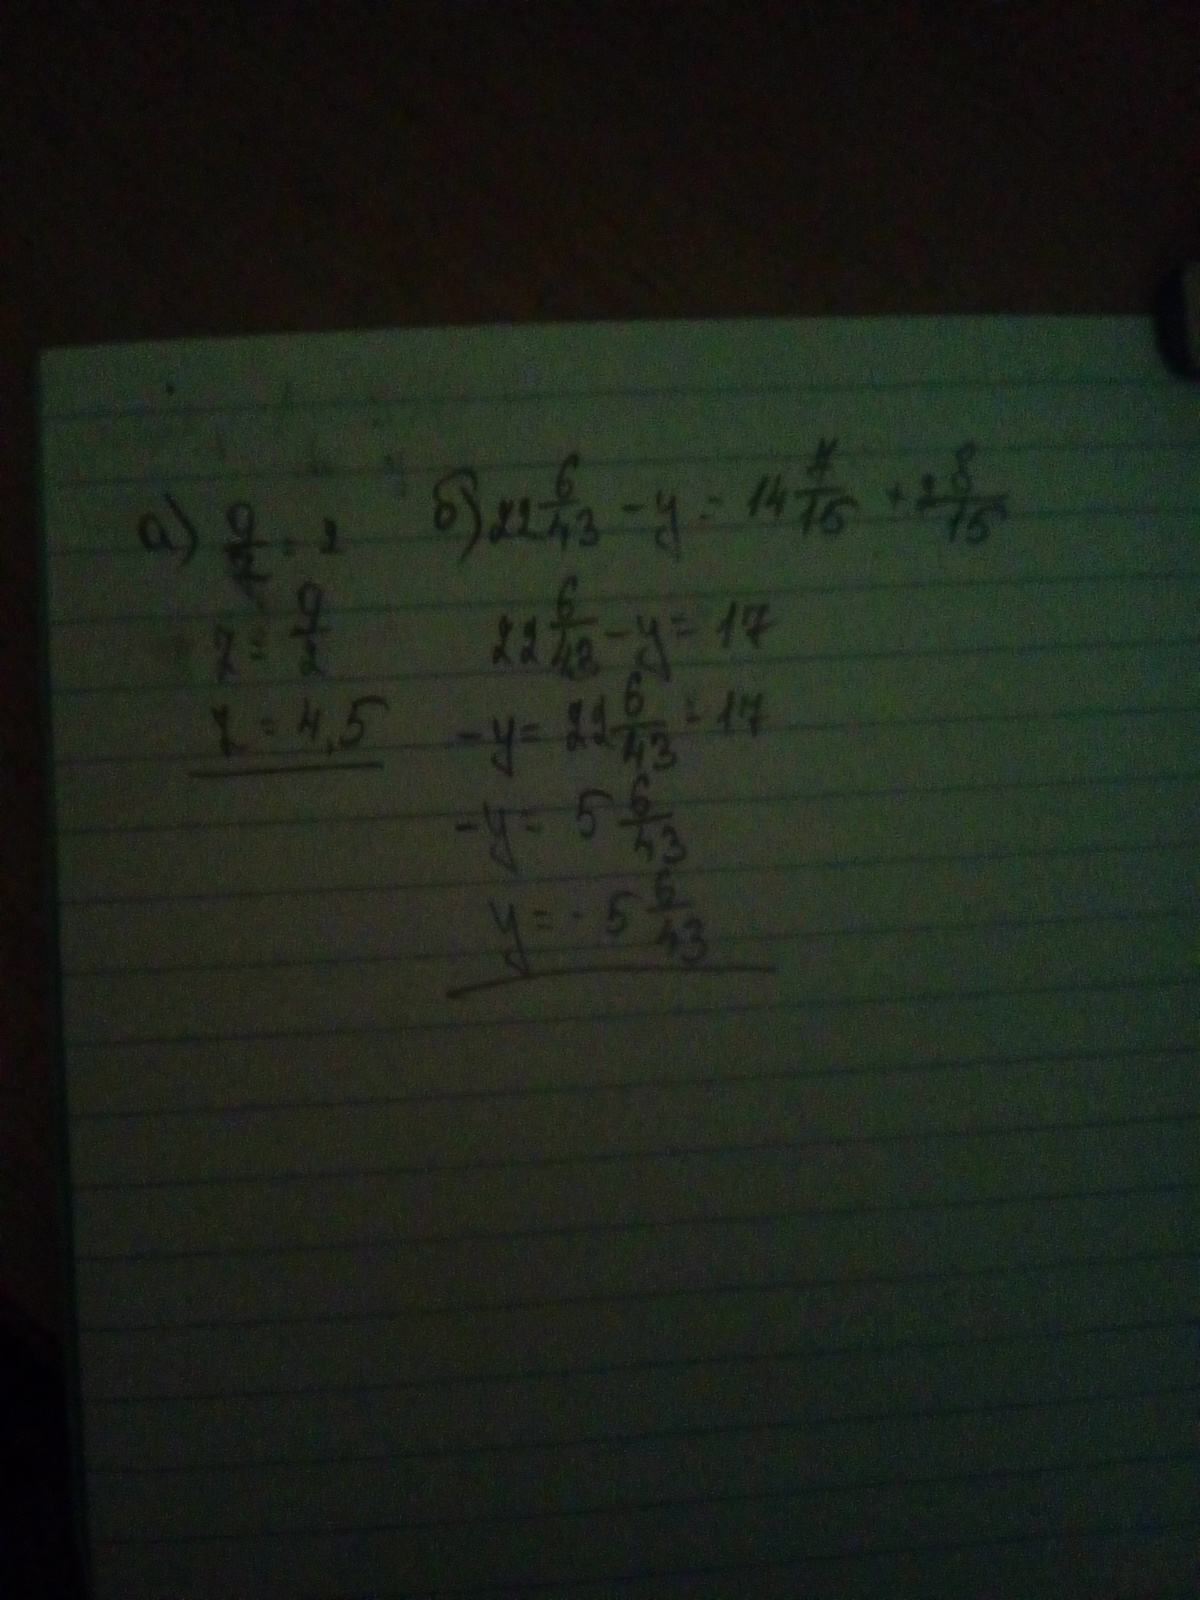 а) 9/z = 2
z = 9/2
z = 4,5
б) 22 6/43 - y = 14 7/15 + 2 8/15
22 6/43 - y = 17
-y = 22 6/43 - 17
-y = 5 6/43
y = - 5 6/43